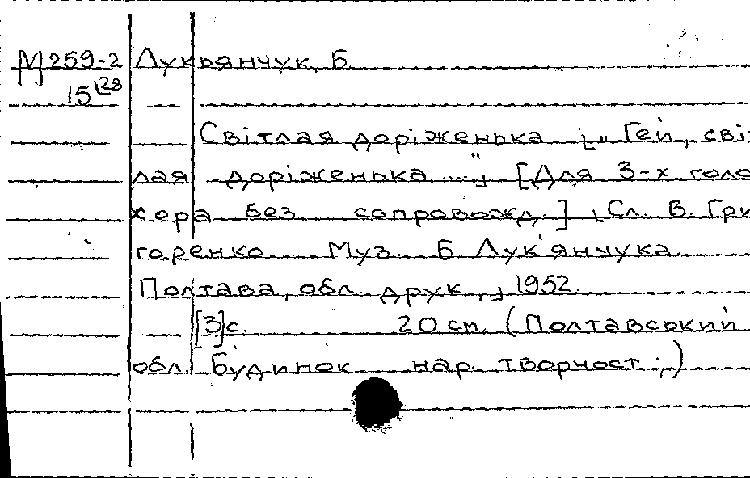 М 259-2 Лукьянчук, Б.
15 128
Світлая доріженька „Гей, сві
лая доріженька ...", [Для 3-х голо
хора без сопровожд.] Сл. В. Гри
горенко Муз Б Лук'янчука
Полтава, обл. друк., 1952.
[3]с. 20 см. (Полтавський
обл. будинок нар. творчост.)